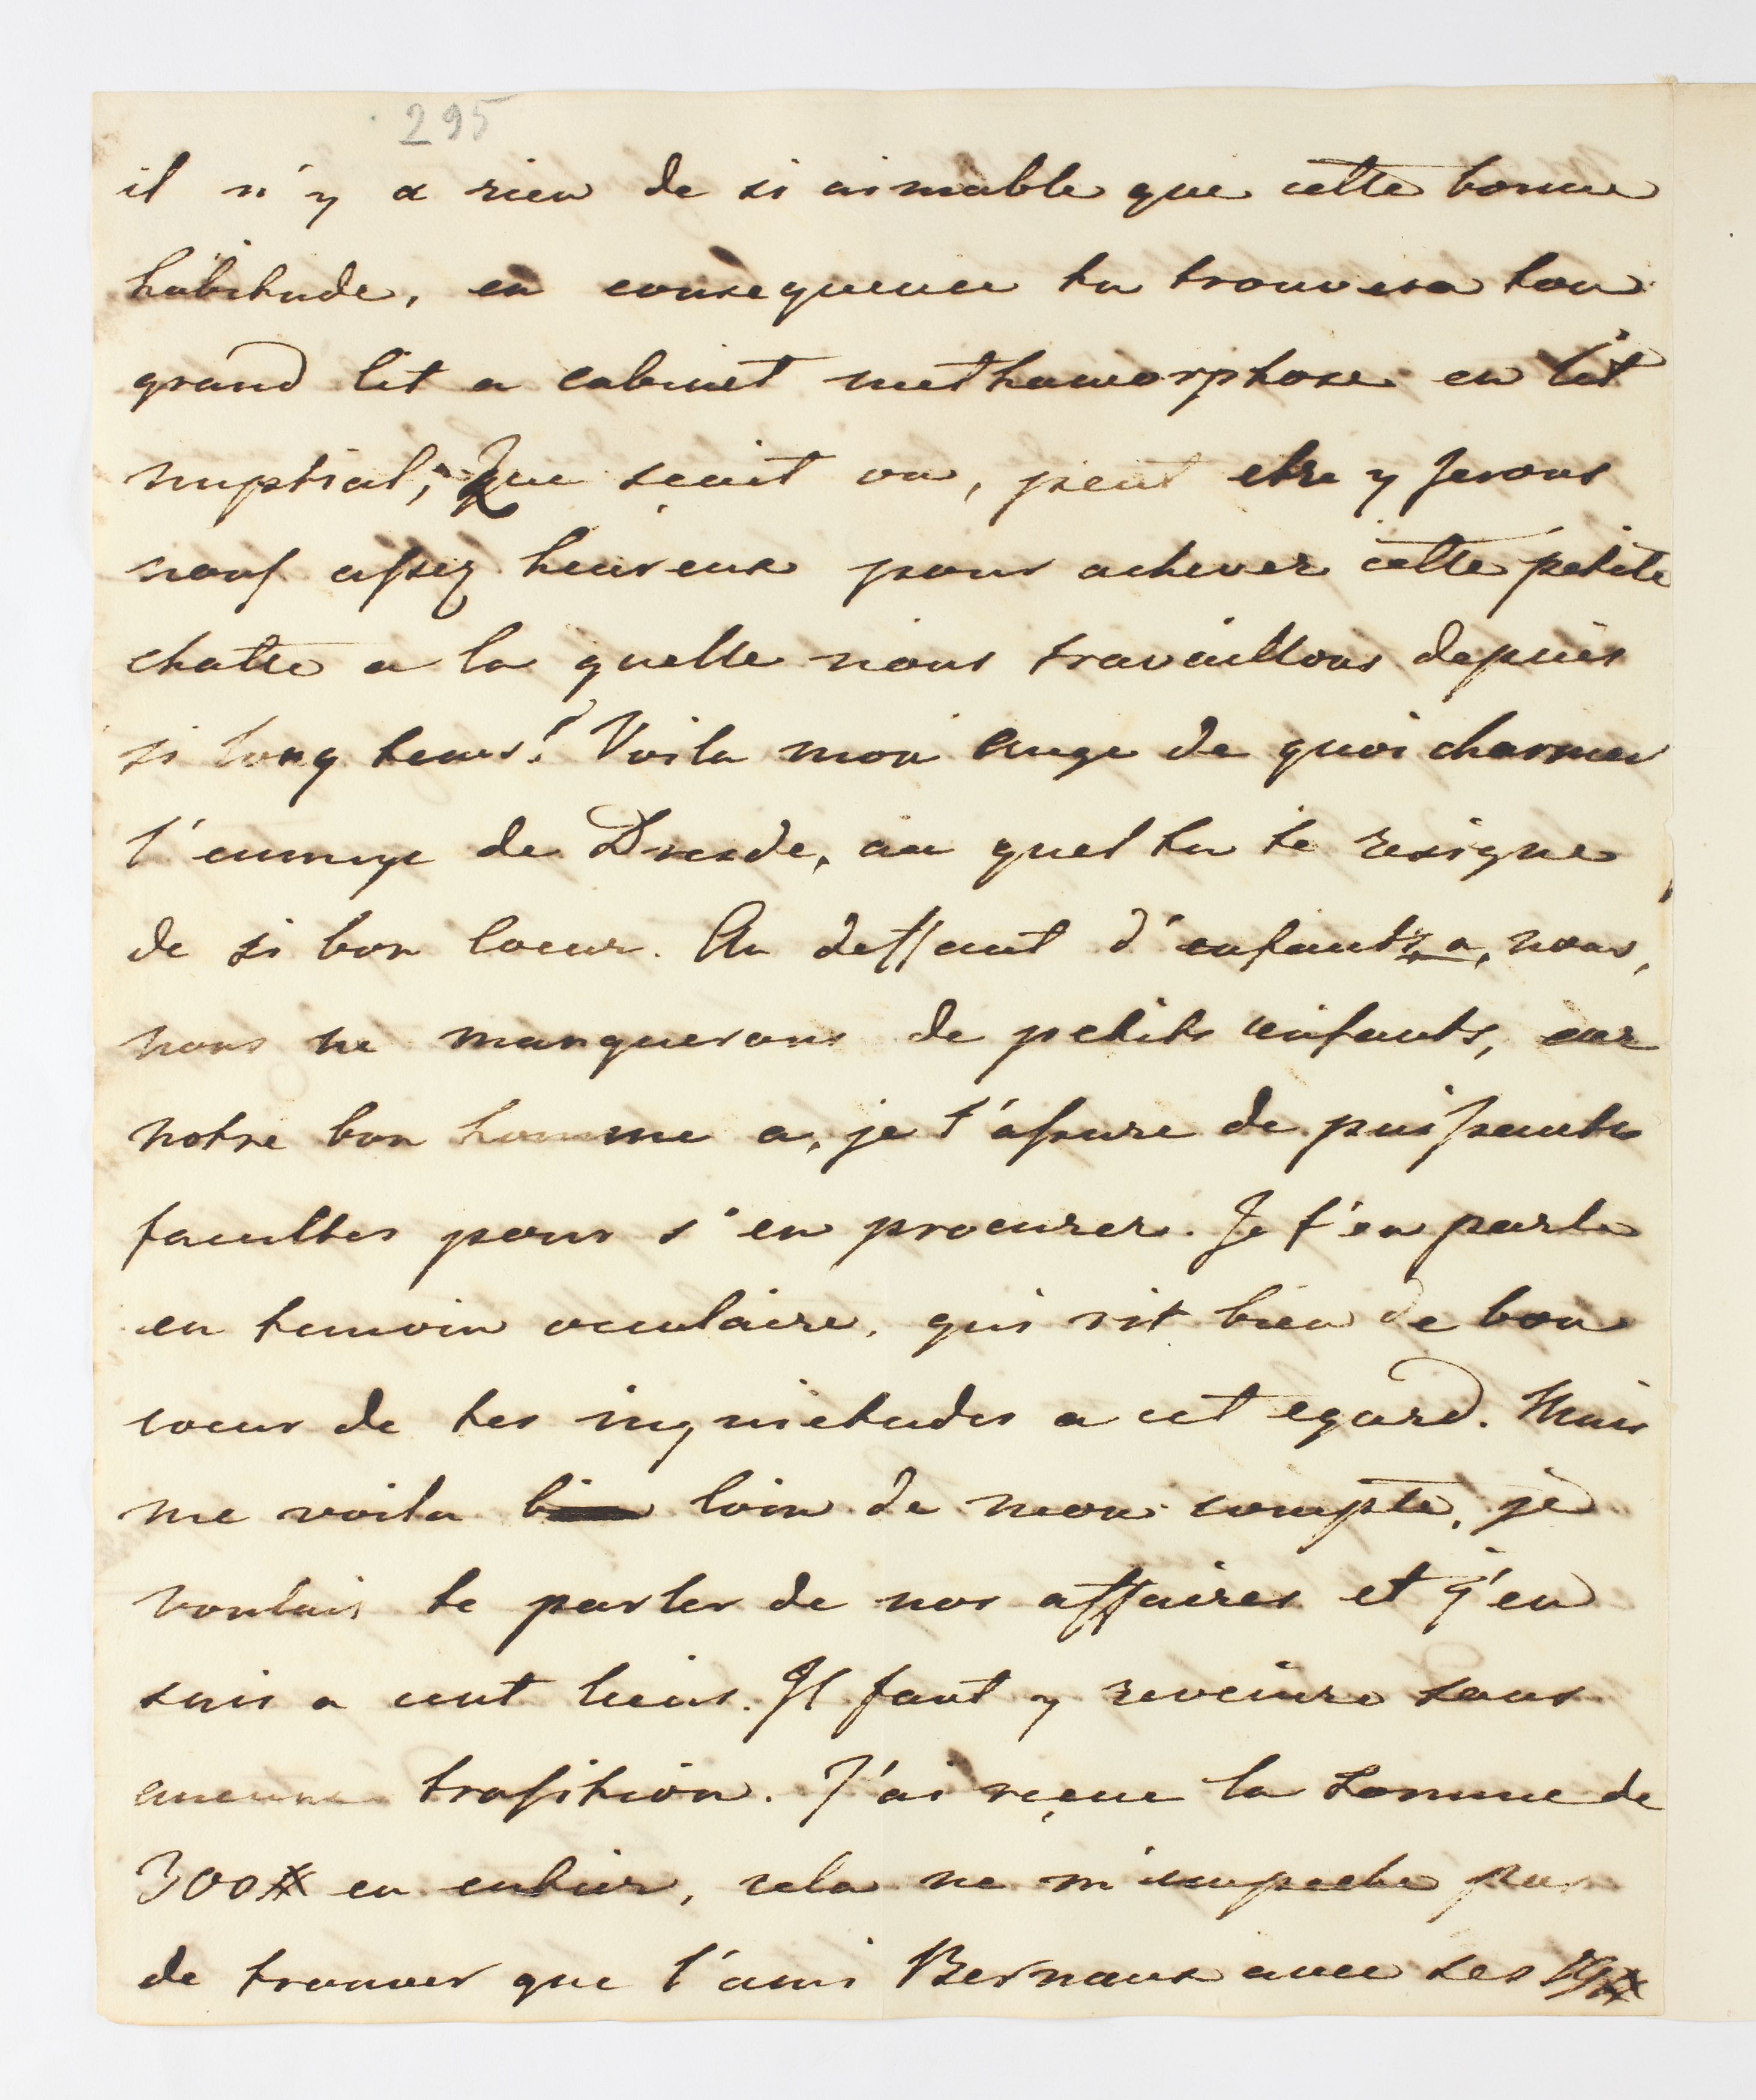 295
il n'y a rien de si aimable que cette bonne
habitude, en consequence tu trouvera ton
grand lit a cabinet methamorphose en lit
nuptial; Que scait on, peut etre y serons
nous assez heureux pour achever cette petite
chatte a la quelle nous travaillons depuis
si long tems! Voila mon ange de quoi charmer
l'ennuye de Dresde, au quel tu te resigne
de si bon coeur. Au deffaut d'enfants a nous,
nous ne manquerons de petits enfants, car
notre bon homme a, je t'assure de puissante
facultes pour s'en procurer. Je t'en parle
en temoin oculaire, qui rit bien de bon
coeur de tes inquietudes a cet egard. Mais
me voila loin de mon compte, je
voulais te parler de nos affaires et j'en
suis a cent lieus. Il faut y revenire sans
aucune trasition. J'ai reçue la somme de
300# en entier, cela ne m'empeche pas
de trouver que l'ami Bernaux avec ses